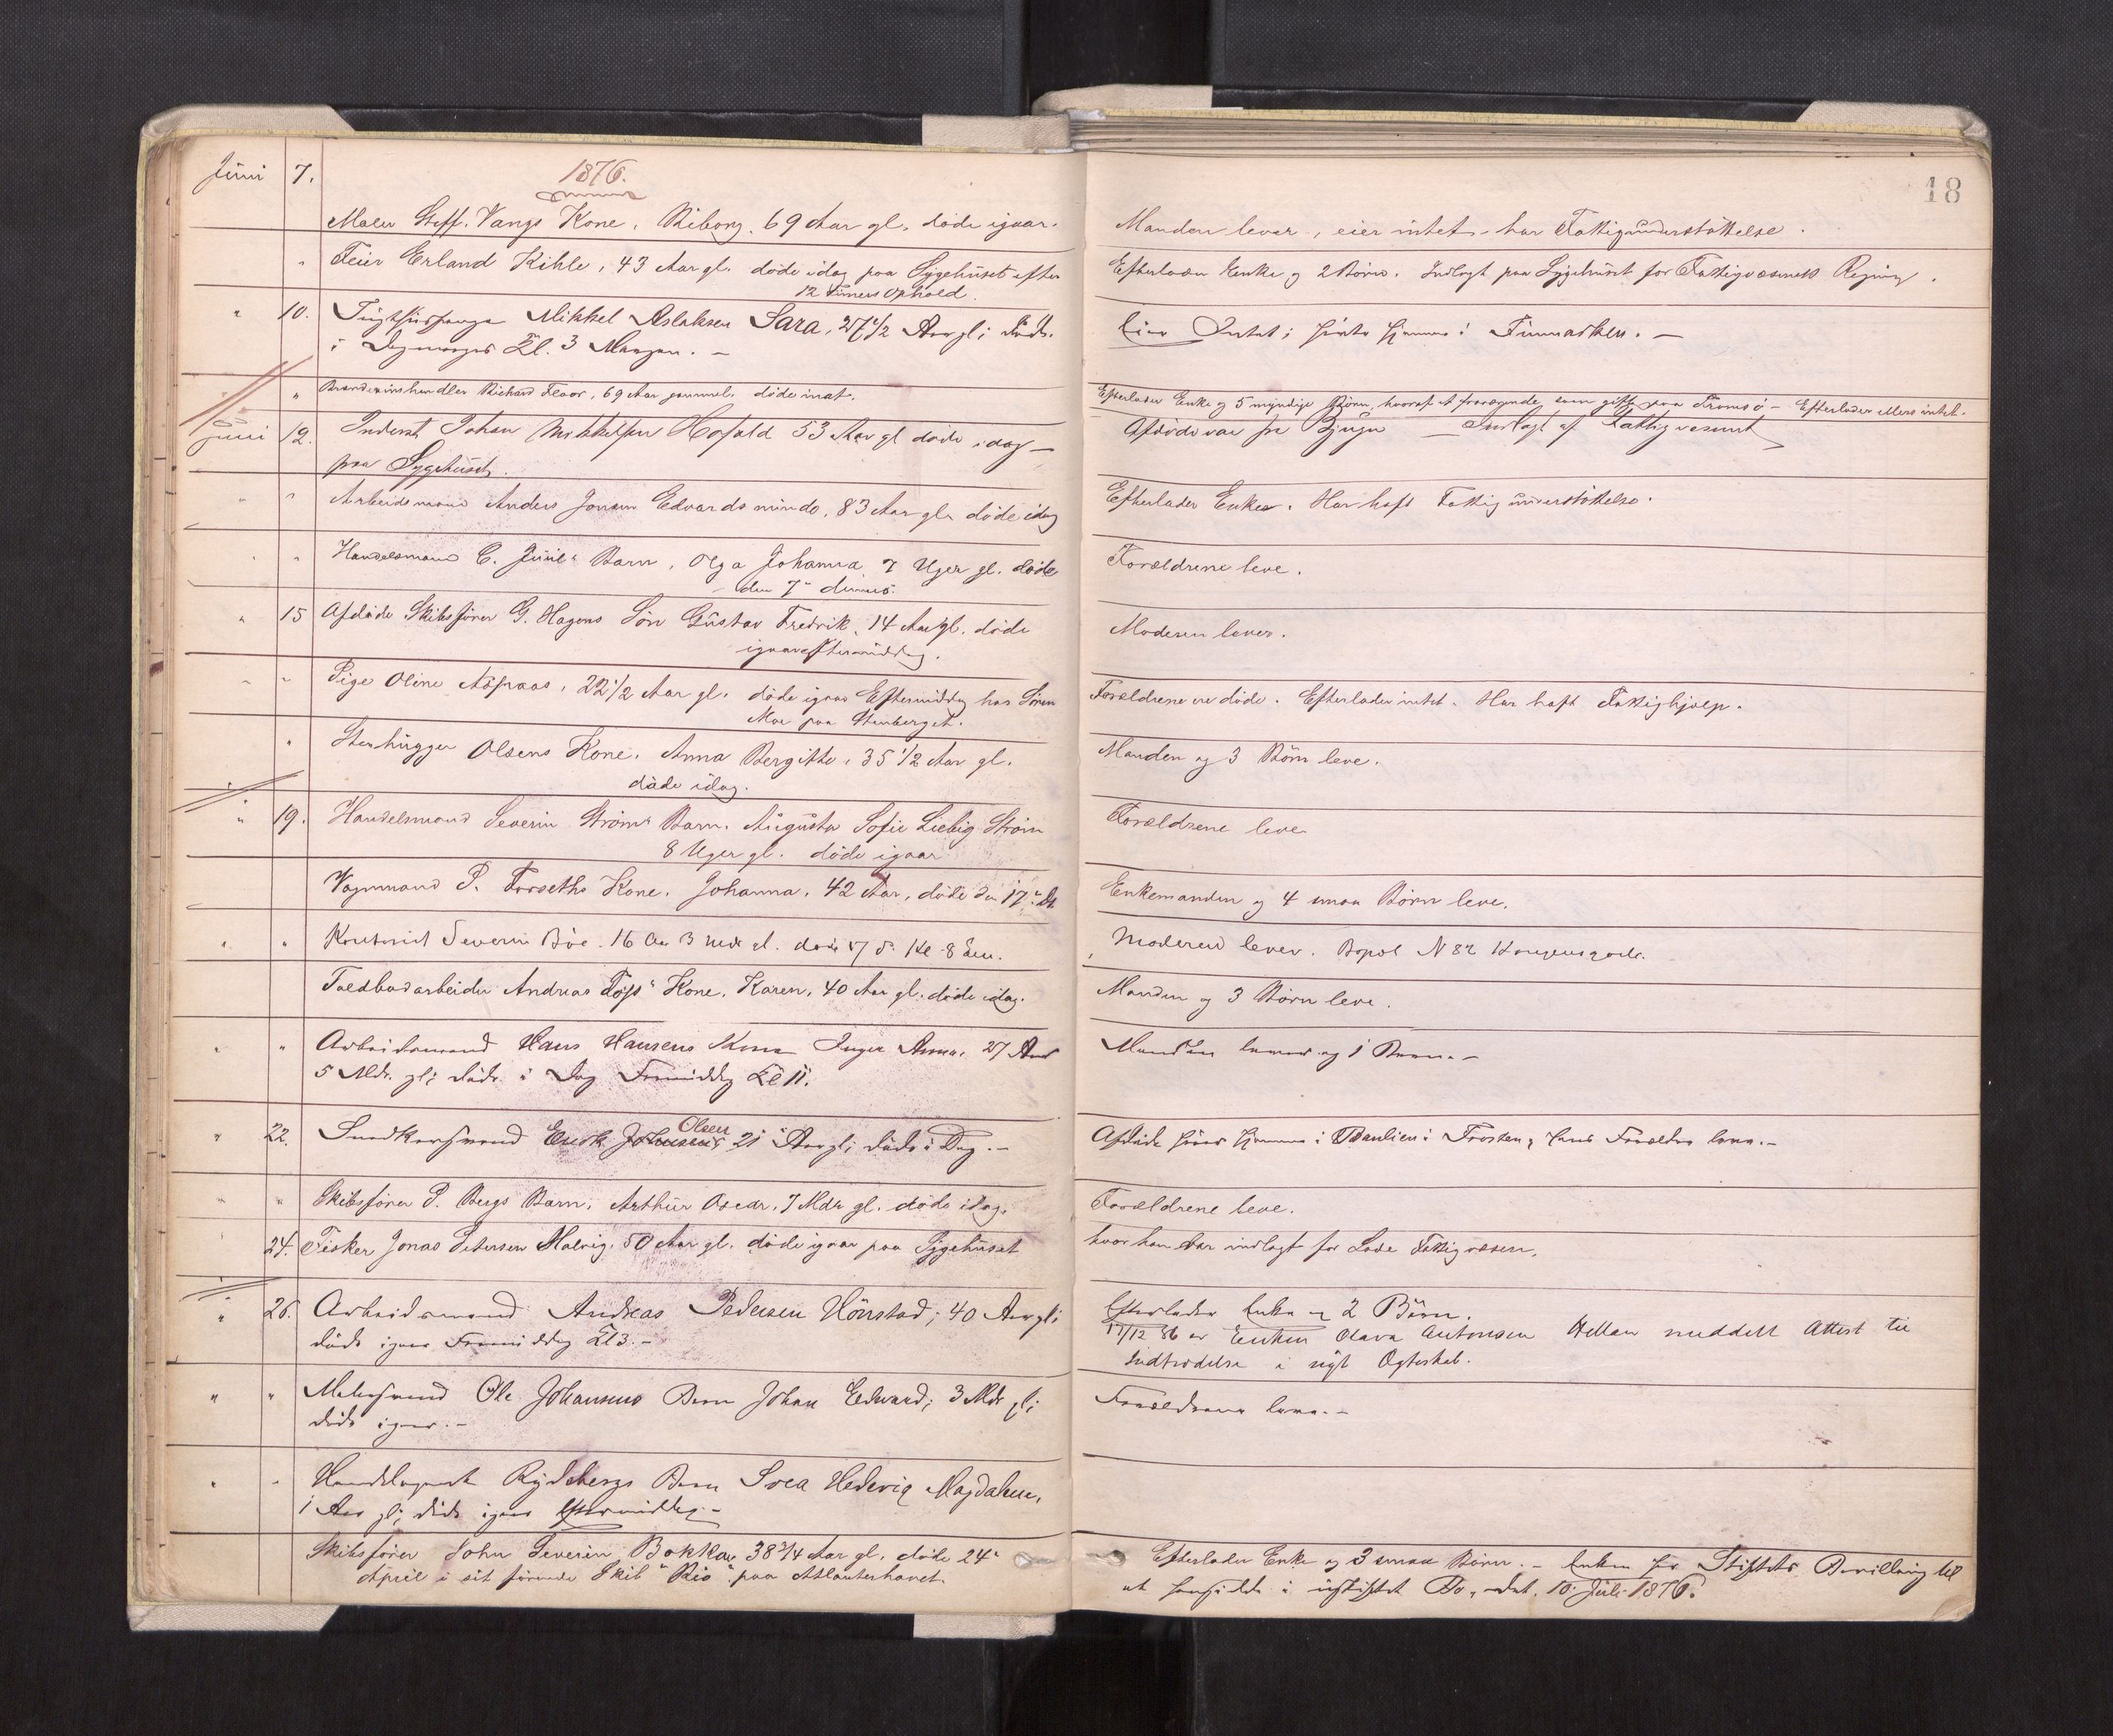 18
Juni 7. 1876.
Maler Steff. Vangs Kone, Viborg, 69 Aar gl. døde igaar.
Manden lever, eier intet - har Fattigunderstøttelse.
" Feier Erland Kihle, 43 Aar gl. døde idag paa Sygehuset efter
12 Timers Ophold.
Efterlader Enke og 2 Børn. Indlagt paa Sygehuset for Fattigvæsenets Regning.
" 10. Tugthusfange Mikkel Aslaksen Sara, 27 1/2 Aar gl; døde
i Dagmorges Kl. 3 Morgen. -
Eier Intet; hørte hjemme i Finmarken. -
" Brændevinshandler Richard Floor, 69 Aar gammel, døde inat.
Efterlader Enke og 5 myndige Børn, hvoraf et fraværende, som gift paa Tromsø - Efterlader ellers intet.
Juni 12. Inderst Johan Mikkelsen Hofald 53 Aar gl døde idag -
paa Sygehuset.
Afdøde var fra Bjugn - Indlagt af Fattigvæsenet
" " Arbeidsmand Anders Jonsen Edvardsminde, 83 Aar gl. døde idag
Efterlader Enke. Har haft Fattigunderstøttelse.
" " Handelsmand C. Juul's Barn, Olga Johanna 7 Uger gl. døde
den 7de dennes.
Forældrene leve.
" 15 Afdøde Skibsfører G. Hagens Søn Gustav Fredrik, 14 Aar gl. døde
igaareftermiddag.
Moderen lever.
" " Pige Oline Aspaas, 22 1/2 Aar gl. døde igaar Eftermiddag hos Søren
Moe paa Stenberget.
Forældrene ere døde. Efterlader intet. Har haft Fattighjælp.
" Stenhugger Olsens Kone, Anna Bergitte, 35 1/2 Aar gl.
døde idag.
Manden og 3 Børn leve.
" 19. Handelsmand Severin Strøms Barn, Augusta Sofie Liebig Strøm
8 Uger gl. døde igaar
Forældrene leve
Vognmand P. Forseths Kone, Johanna, 42 Aar, døde den 17de
Enkemanden og 4 smaa Børn leve.
" " Severin Bøe. 16 Aar 3 Mdr gl. døde 17 ds. Kl 8 Em.
Moderen lever. Bopæl N 82 Kongensgade.
Toldbodarbeider Andreas Foss' Kone, Karen, 40 Aar gl. døde idag.
Manden og 3 Børn leve.
" " Arbeidsmand Hans Hansens Kone Inger Anna, 27 Aar
5 Mdr. gl; døde i Dag Formiddag Kl 11.
Manden lever og 1 Barn. -
" 22. Snedkersvend Enok Johnsens Olsen 21 Aar gl; døde i Dag. -
Afdøde hører hjemme i i Frosten; hans Forældre leve. -
" " Skibsfører P. Bergs Barn, Arthur Oscar, 7 Mdr gl. døde idag.
Forældrene leve.
24. Fisker Jonas Petersen Malvig, 50 Aar gl. døde igaar paa Sygehuset
hvor han var indlagt for Lade Fattigvæsen.
" 26. Arbeidsmand Andreas Pedersen Hönstad; 40 Aar gl;
døde igaar Formiddag Kl 3. -
Efterlader Enke og 2 Børn.
17/12 86 er Enken Olava Antonsen meddelt Attest til
Indtrædelse i nyt Ægteskab.
" " Malersvend Ole Johansens Barn Johan Edvard; 3 Mdr gl;
døde igaar. -
Forældrene leve. -
" " Handelsagent Rydebergs Barn Svea Hedevig Magdalene,
1 Aar gl; døde igaar Eftermiddag. -
Skibsfører John Severin Bokka, 38 3/4 Aar gl. døde 24de
April i sit førende Skib "Rio" paa Atlanterhavet.
Efterlader Enke og 3 smaa Børn. - Enken har Stiftets Bevilling til
at hensidde i uskiftet Bo, dat. 10. Juli 1876.